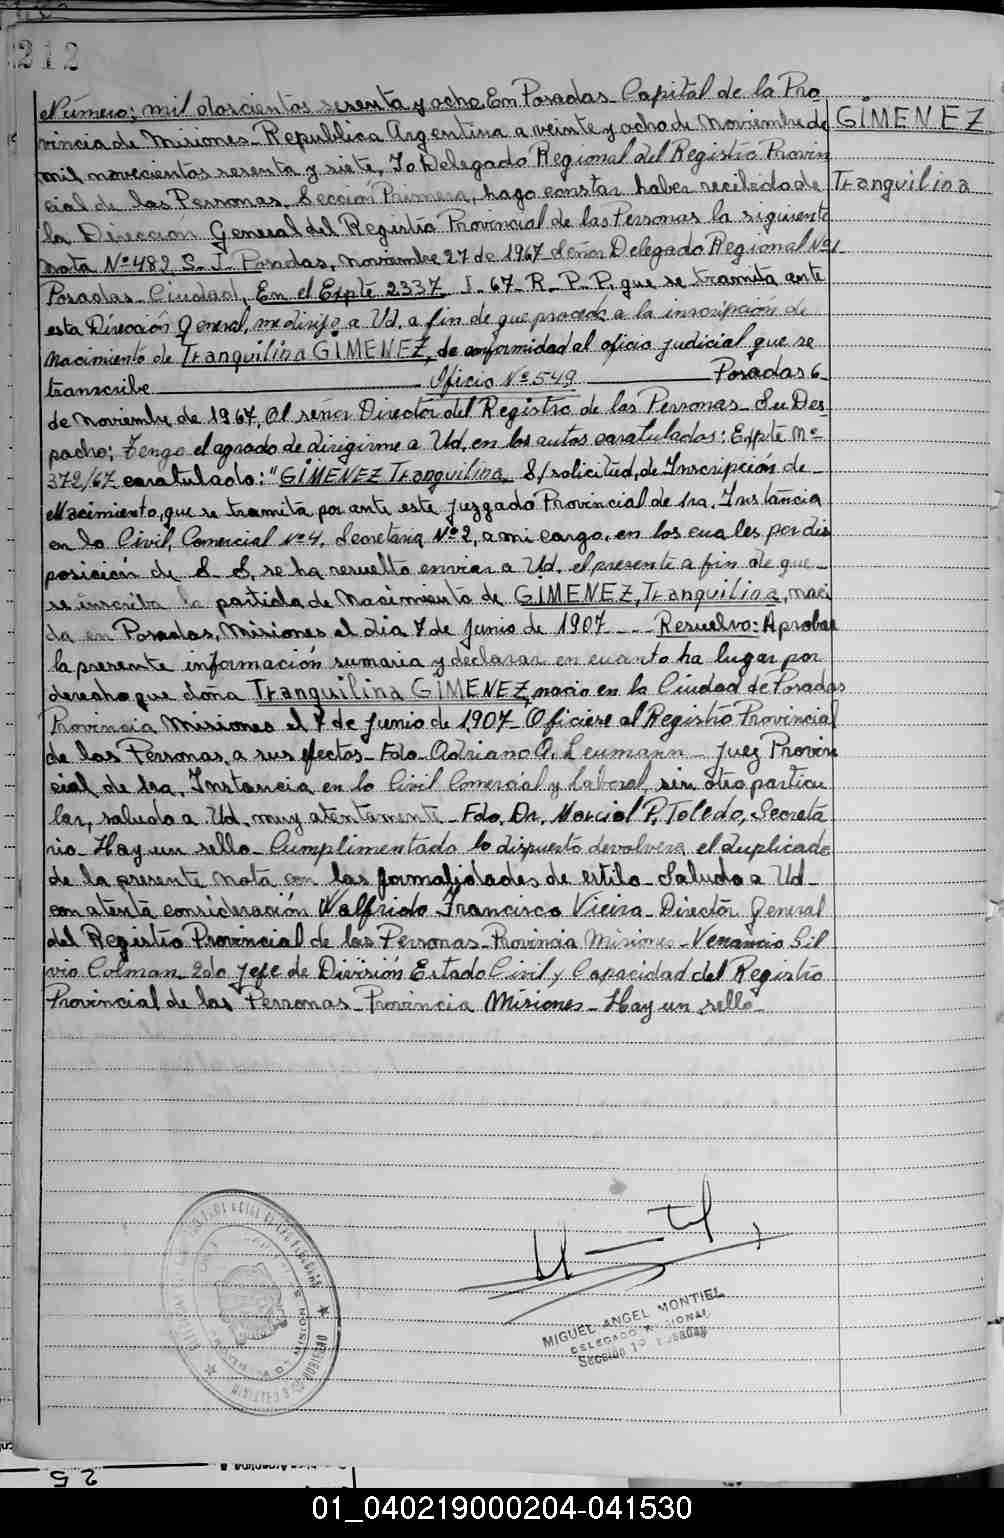 212
GIMENEZ
Tranquilina
Número: mil doscientos sesenta y ocho. En Posadas Capital de la Pro
vincia de Misiones Republica Argentina a veinte y ocho de Noviembre de
mil novecientos sesenta y siete, Yo Delegado Regional del Registro Provin
cial de las Personas, Sección Primera, hago constar haber recibido de
la Direccion General del Registro Provincial de las Personas la siguiente
nota Nº 482 S-J- Posadas, noviembre 27 de 1967 Señor Delegado Regional Nº1
Posadas-Ciudad, En el Expte 2337 J-67-R-P-P, que se tramita ante
esta Dirección General, me dirijo a Ud. a fin de que proceda a la inscripción de
Nacimiento de Tranquilina GIMENEZ, de conformidad al oficio judicial que se
transcribe Oficio Nº 549 Posadas 6
de Noviembre de 1967, Al señor Director del Registro de las Personas- Su Des
pacho; Tengo el agrado de dirigirme a Ud. en los autos caratulados: Expte Nº
372/67 caratulado: "GIMENEZ Tranquilina, S/solicitud, de Inscripción de
Nacimiento, que se tramita por ante este Juzgado Provincial de 1ra. Instancia
en lo Civil, Comercial Nº4, Secretaria Nº2, a mi cargo, en los cuales por dis
posición de S. S. se ha resuelto enviar a Ud. el presente a fin de que
se inscriba la partida de Nacimiento de GIMENEZ, Tranquilina, naci
da en Posadas, Misiones el dia 7 de Junio de 1907 --- Resuelvo: Aprobar
la presente información sumaria y declarar en cuanto ha lugar por
derecho que doña Tranquilina GIMENEZ, nacio en la Ciudad de Posadas
Provincia Misiones el 7 de Junio de 1907- Oficiese al Registro Provincial
de las Personas a sus efectos- Fdo- Adriano A. Leumann- Juez Provin
cial de 1ra, Instancia en lo Civil Comercial y Laboral, sin otro particu
lar, saludo a Ud. muy atentamente- Fdo. Dr. Marcial P. Toledo, Secreta
rio- Hay un sello- Cumplimentado lo dispuesto devolvera el duplicado
de la presente nota con las formalidades de estilo- Saludo a Ud-
con atenta consideración Walfrido Francisco Vieira- Director General
del Registro Provincial de las Personas- Provincia Misiones- Venancio Sil
vio Colman 2do Jefe de División Estado Civil y Capacidad del Registro
Provincial de las Personas- Provincia Misiones- Hay un sello-
MIGUEL ANGEL MONTIEL
DELEGADO REGIONAL
Sección 1ª Posadas
25
01_040219000204-041530